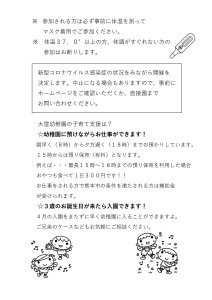 ※ 参加される方は必ず事前に体温を測って
マスク着用でご参加ください。
※ 体温３７．０°以上の方、体調がすぐれない方の
参加はお断りします。
新型コロナウイルス感染症の状況をみながら開催を
決定します。中止になる場合もありますので、事前に
ホームページをご確認いただくか、直接園まで
お問い合わせください。
大窪幼稚園の子育て支援は？
☆幼稚園に預けながらお仕事ができます！
朝早く（８時）から夕方遅く（１８時）までお預かりしています。
１５時からは預り保育（有料）となります。
例えば・・・最長１５時～１８時までの預り保育を利用した場合
おやつも食べて１日３００円です！！
お仕事をされる方で熊本市の条件を満たされる方は補助金
が受けられます。
☆３歳のお誕生日が来たら入園できます！
４月の入園をまたずに早く幼稚園に入ることができますよ。
ご兄弟のケースなどもお気軽にご相談ください。